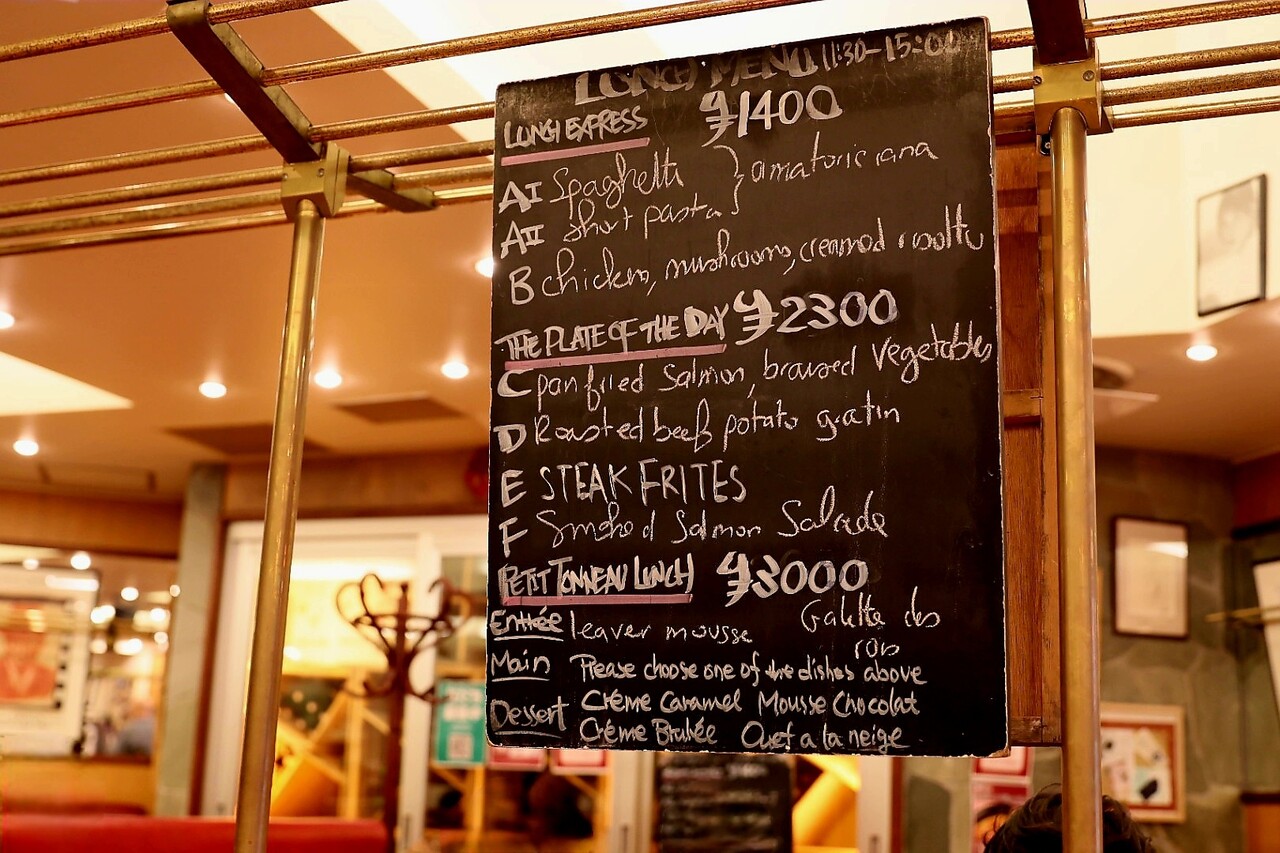 LUNCH MENU 11:30-15:00
LUNCH EXPRESS ¥1400
AI Spaghetti } amatoriciana
AII Short pasta
B chicken, mushrooms, creamed risotto
THE PLATE OF THE DAY ¥2300
C pan fried Salmon, braised vegetables
D Roasted beef potato gratin
E STEAK FRITES
F Smoked Salmon Salade
PETIT TONNEAU LUNCH ¥3000
Entrée leaver mousse Galette des
rois
Main Please choose one of the dishes above
Créme Caramel Mousse Chocolat
Dessert Créme Brulée Ouef a la neige